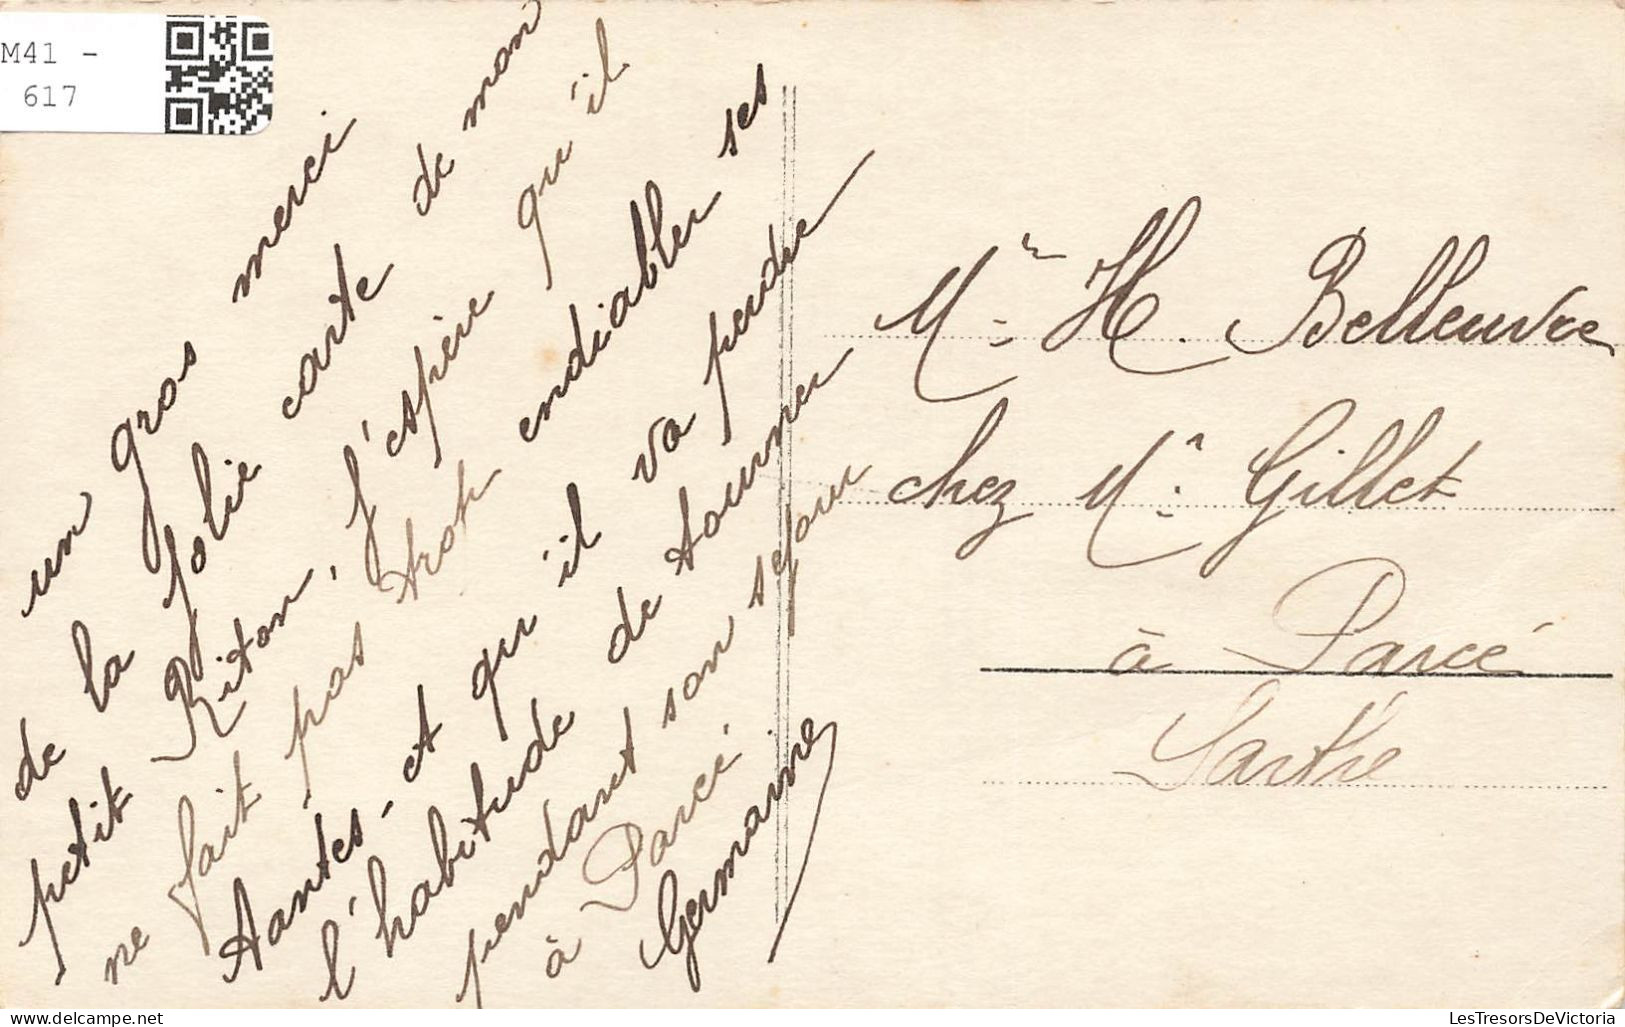 M41 -
617
un gros merci
de la jolie carte de mon
petit Riton, j'espère qu'il
ne fait pas trop endiabler ses
tantes - et qu'il va perdre
l'habitude de tourner
pendant son séjour
à Parcé.
Germaine
Mr H. Belleuvre
chez Mr Gillet
à Parcé
Sarthe
LesTresorsDeVictoria
www.delcampe.net